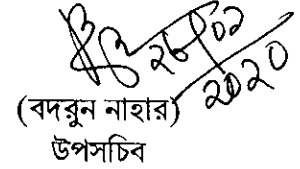 ২৬/০২
২০২০
(বদরুন নাহার)
উপসচিব